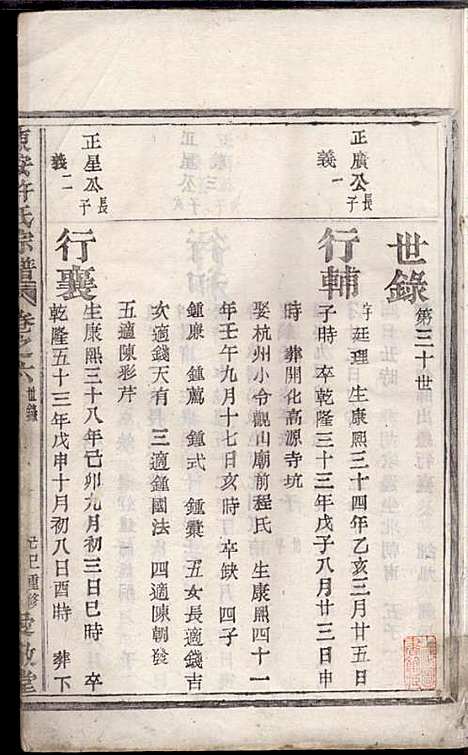 世錄 第三十世
正廣公長子
義一
行輔 字廷理 生康熙三十四年乙亥三月廿五日
子時 卒乾隆三十三年戊子八月廿三日申
時 葬開化高源寺坑
娶杭州小令觀山廟前程氏 生康熙四十一
年壬午九月十七日亥時 卒缺 四子
鍾康 鍾薦 鍾式 鍾 五女長適錢吉
次適錢天有 三適鍾國法 四適陳朝
五適陳彩芹
正星公長子
義二
行襄 生康熙三十八年己卯九月初三日巳時 卒
乾隆五十三年戊申十月初八日酉時 葬下
許氏宗譜 卷之六 世錄 己巳重修 堂